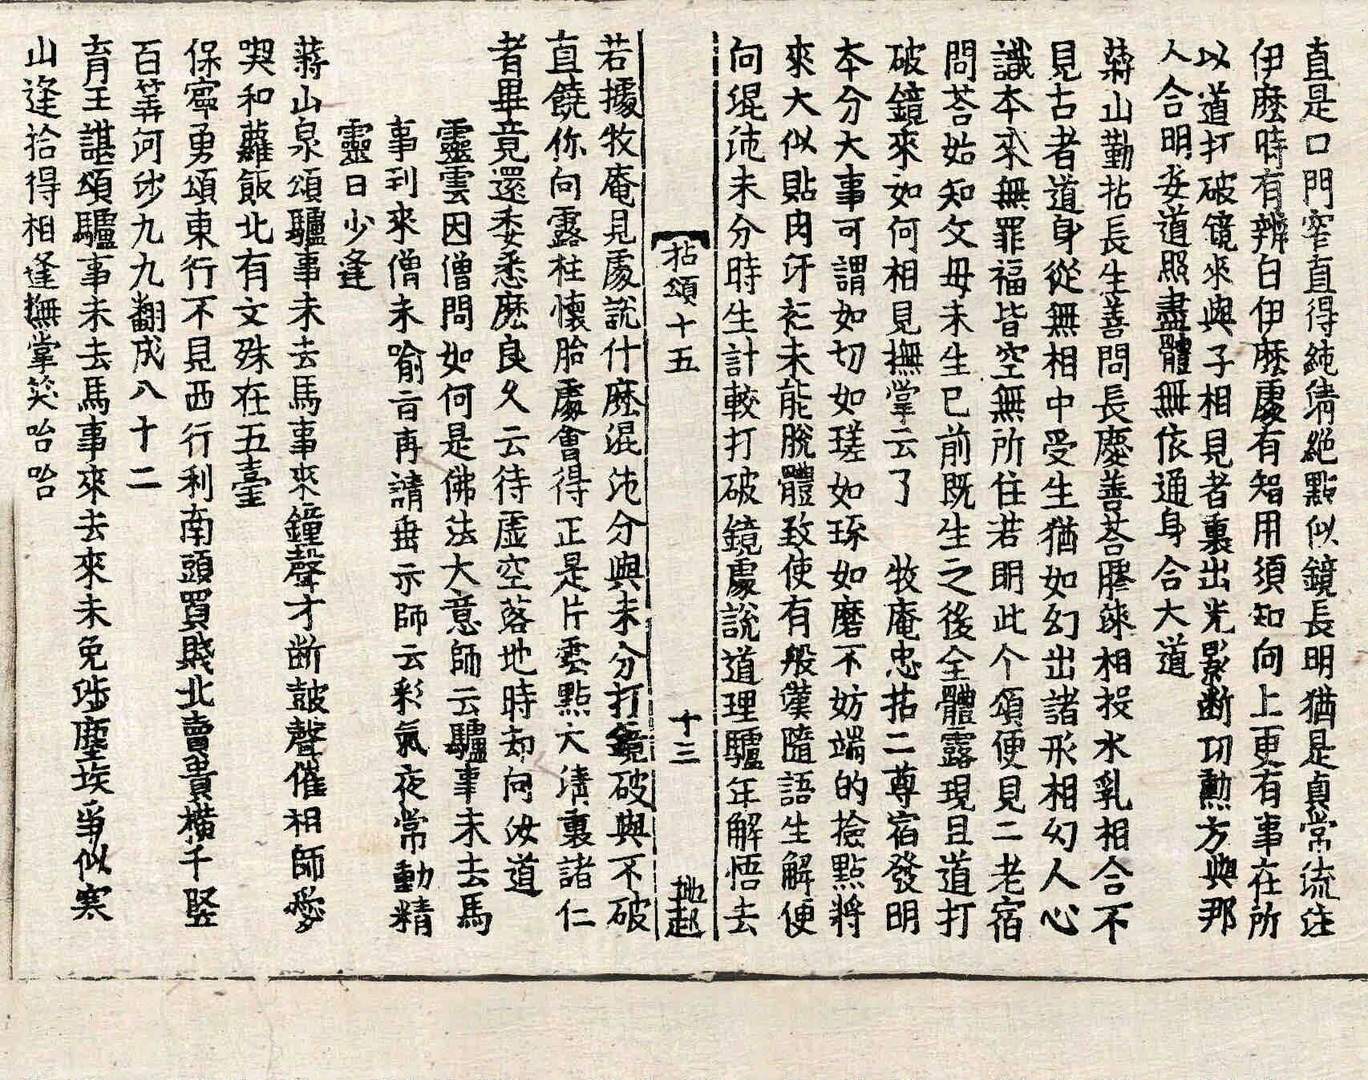 直是口門窄直得純清絕點似鏡長明猶是真常流注
伊麽時有辨白伊麽處有智用須知向上更有事在所
以道打破鏡來與子相見者裏出光影斷功勳方與那
人合明安道照盡體無依通身合大道
蔣山勤拈長生善問長慶善荅膠漆相投水乳相合不
見古者道身從無相中受生猶如幻出諸形相幻人心
識本來無罪福皆空無所住若明此个頌便見二老宿
問荅始知父母未生已前既生之後全體露現且道打
破鏡來如何相見撫掌云了 牧庵忠拈二尊宿發明
本分大事可謂如切如瑳如琢如磨不妨端的撿點將
來大似貼肉汗衫未能脫體致使有般漢隨語生解便
向混沌未分時生計較打破鏡處說道理驢年解悟去
拈頌十五 十三 地起
若據牧庵見處說什麽混沌分與未分打鏡破與不破
直饒你向露柱懷胎處會得正是片雲點太清裏諸仁
者畢竟還委悉麽良久云待虛空落地時却向汝道
靈雲因僧問如何是佛法大意師云驢事未去馬
事到來僧未喻旨再請垂示師云彩氣夜常動精
靈日少逢
蔣山泉頌驢事未去馬事來鐘聲才斷皷聲催祖師愛
喫和蘿飯北有文殊在五臺
保寧勇頌東行不見西行利南頭買賤北賣貴橫千竪
百筭河沙九九翻成八十二
育王諶頌驢事未去馬事來去來未免涉塵埃爭似寒
山逢拾得相逢撫掌笑哈哈